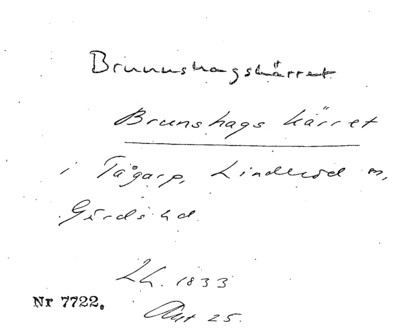 Brunnshagskärret
Brunshags kärret
i Tågarp, Linderöd sn,
Gärds hd.
Lh. 1833
Akt 25.
Nr 7722.